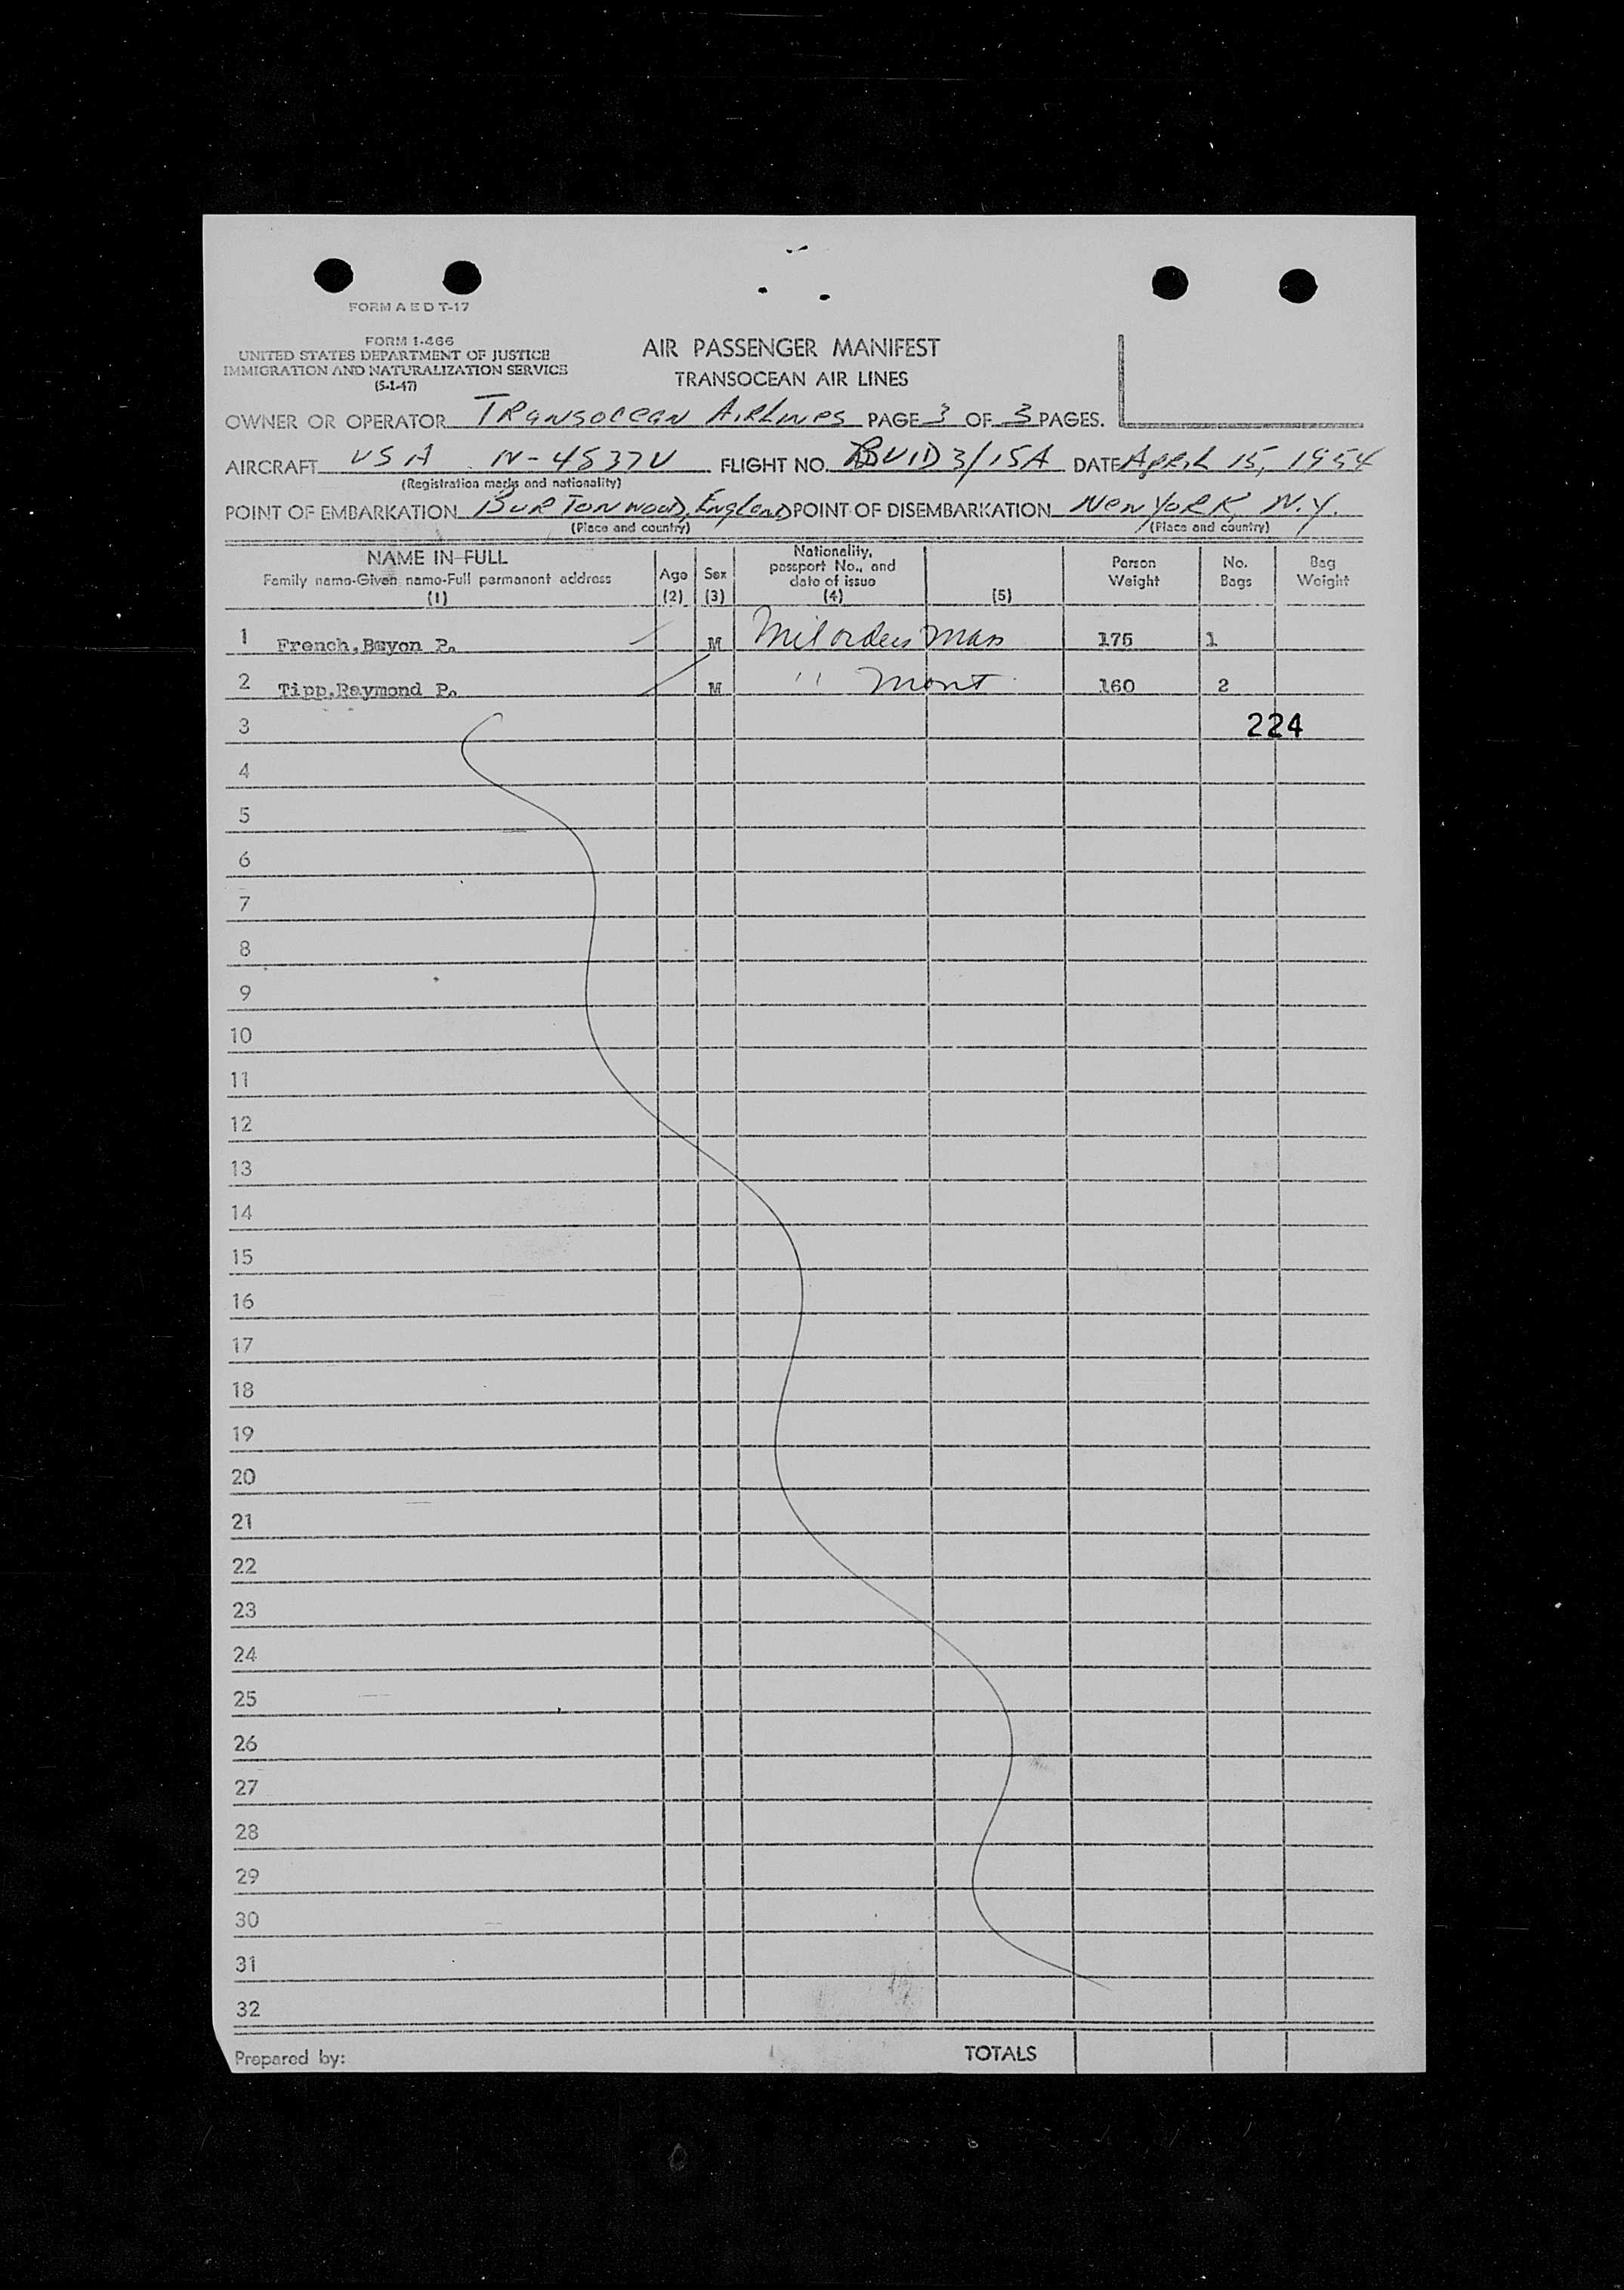 FORM A E D T-17
FORM I-466
UNITED STATES DEPARTMENT OF JUSTICE
IMMIGRATION AND NATURALIZATION SERVICE
(5-1-47)
AIR PASSENGER MANIFEST
TRANSOCEAN AIR LINES
OWNER OR OPERATOR Transocean Airlines PAGE 3 OF 3 PAGES.
AIRCRAFT USA N-4537V FLIGHT NO. 3/15A DATE April 15, 1954
(Registration marks and nationality)
POINT OF EMBARKATION Burtonwood, England POINT OF DISEMBARKATION New York, N.Y.
(Place and country) (Place and country)
NAME IN FULL
Family name-Given name-Full permanent address
(1)
Age
(2)
Sex
(3)
Nationality,
passport No., and
date of issue
(4)
(5)
Person
Weight
No.
Bags
Bag
Weight
1 French, Bayon P. M Mil orders Mass 175 1
2 Tipp, Raymond P. M " Mont 160 2
3 224
4
5
6
7
8
9
10
11
12
13
14
15
16
17
18
19
20
21
22
23
24
25
26
27
28
29
30
31
32
Prepared by: TOTALS